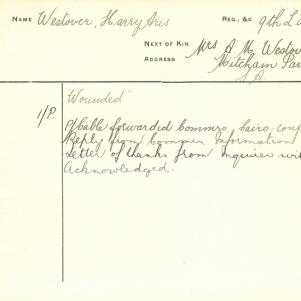 NAME Westover, Harry Aris
REG., &C. 9th L
NEXT OF KIN Mrs A M Westov
ADDRESS Mitcham Par
S.A
Wounded
I/P. P/Cable forwarded Commrs Cairo conf
Reply from Commrs, Information
Letter of thanks from Inquirer wi
Acknowledged.